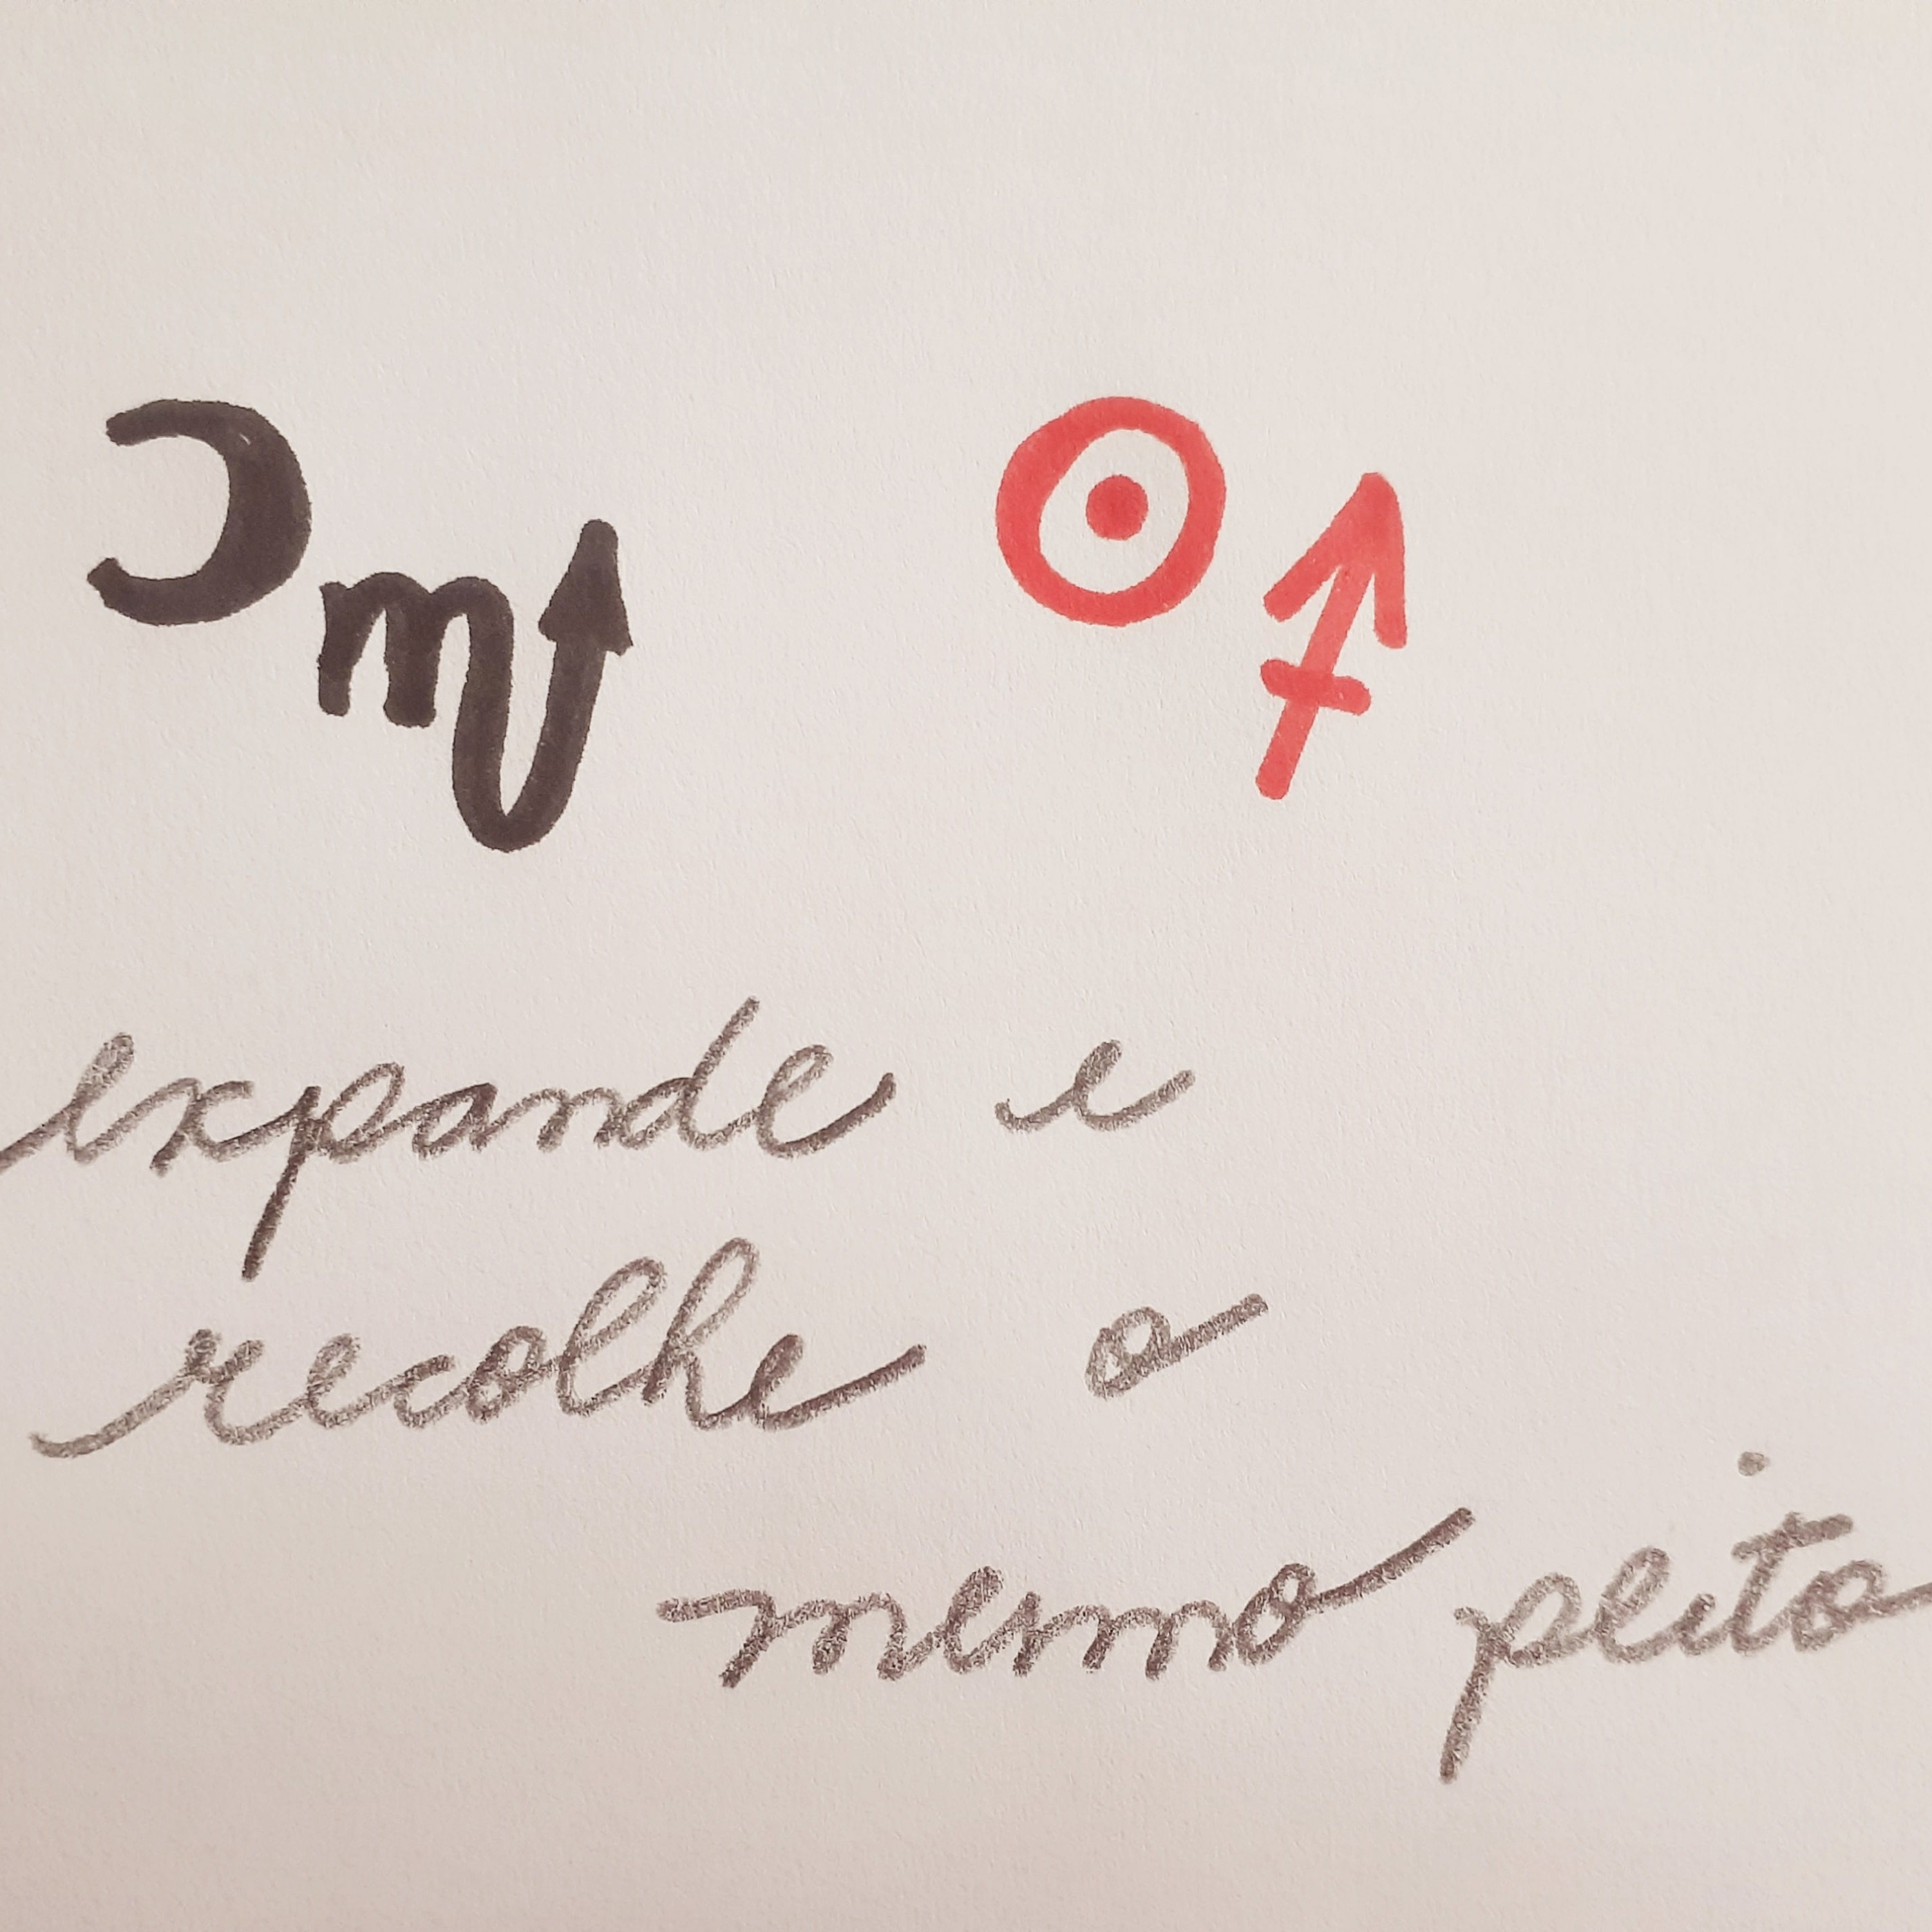 expande e
recolhe o
memo pleito